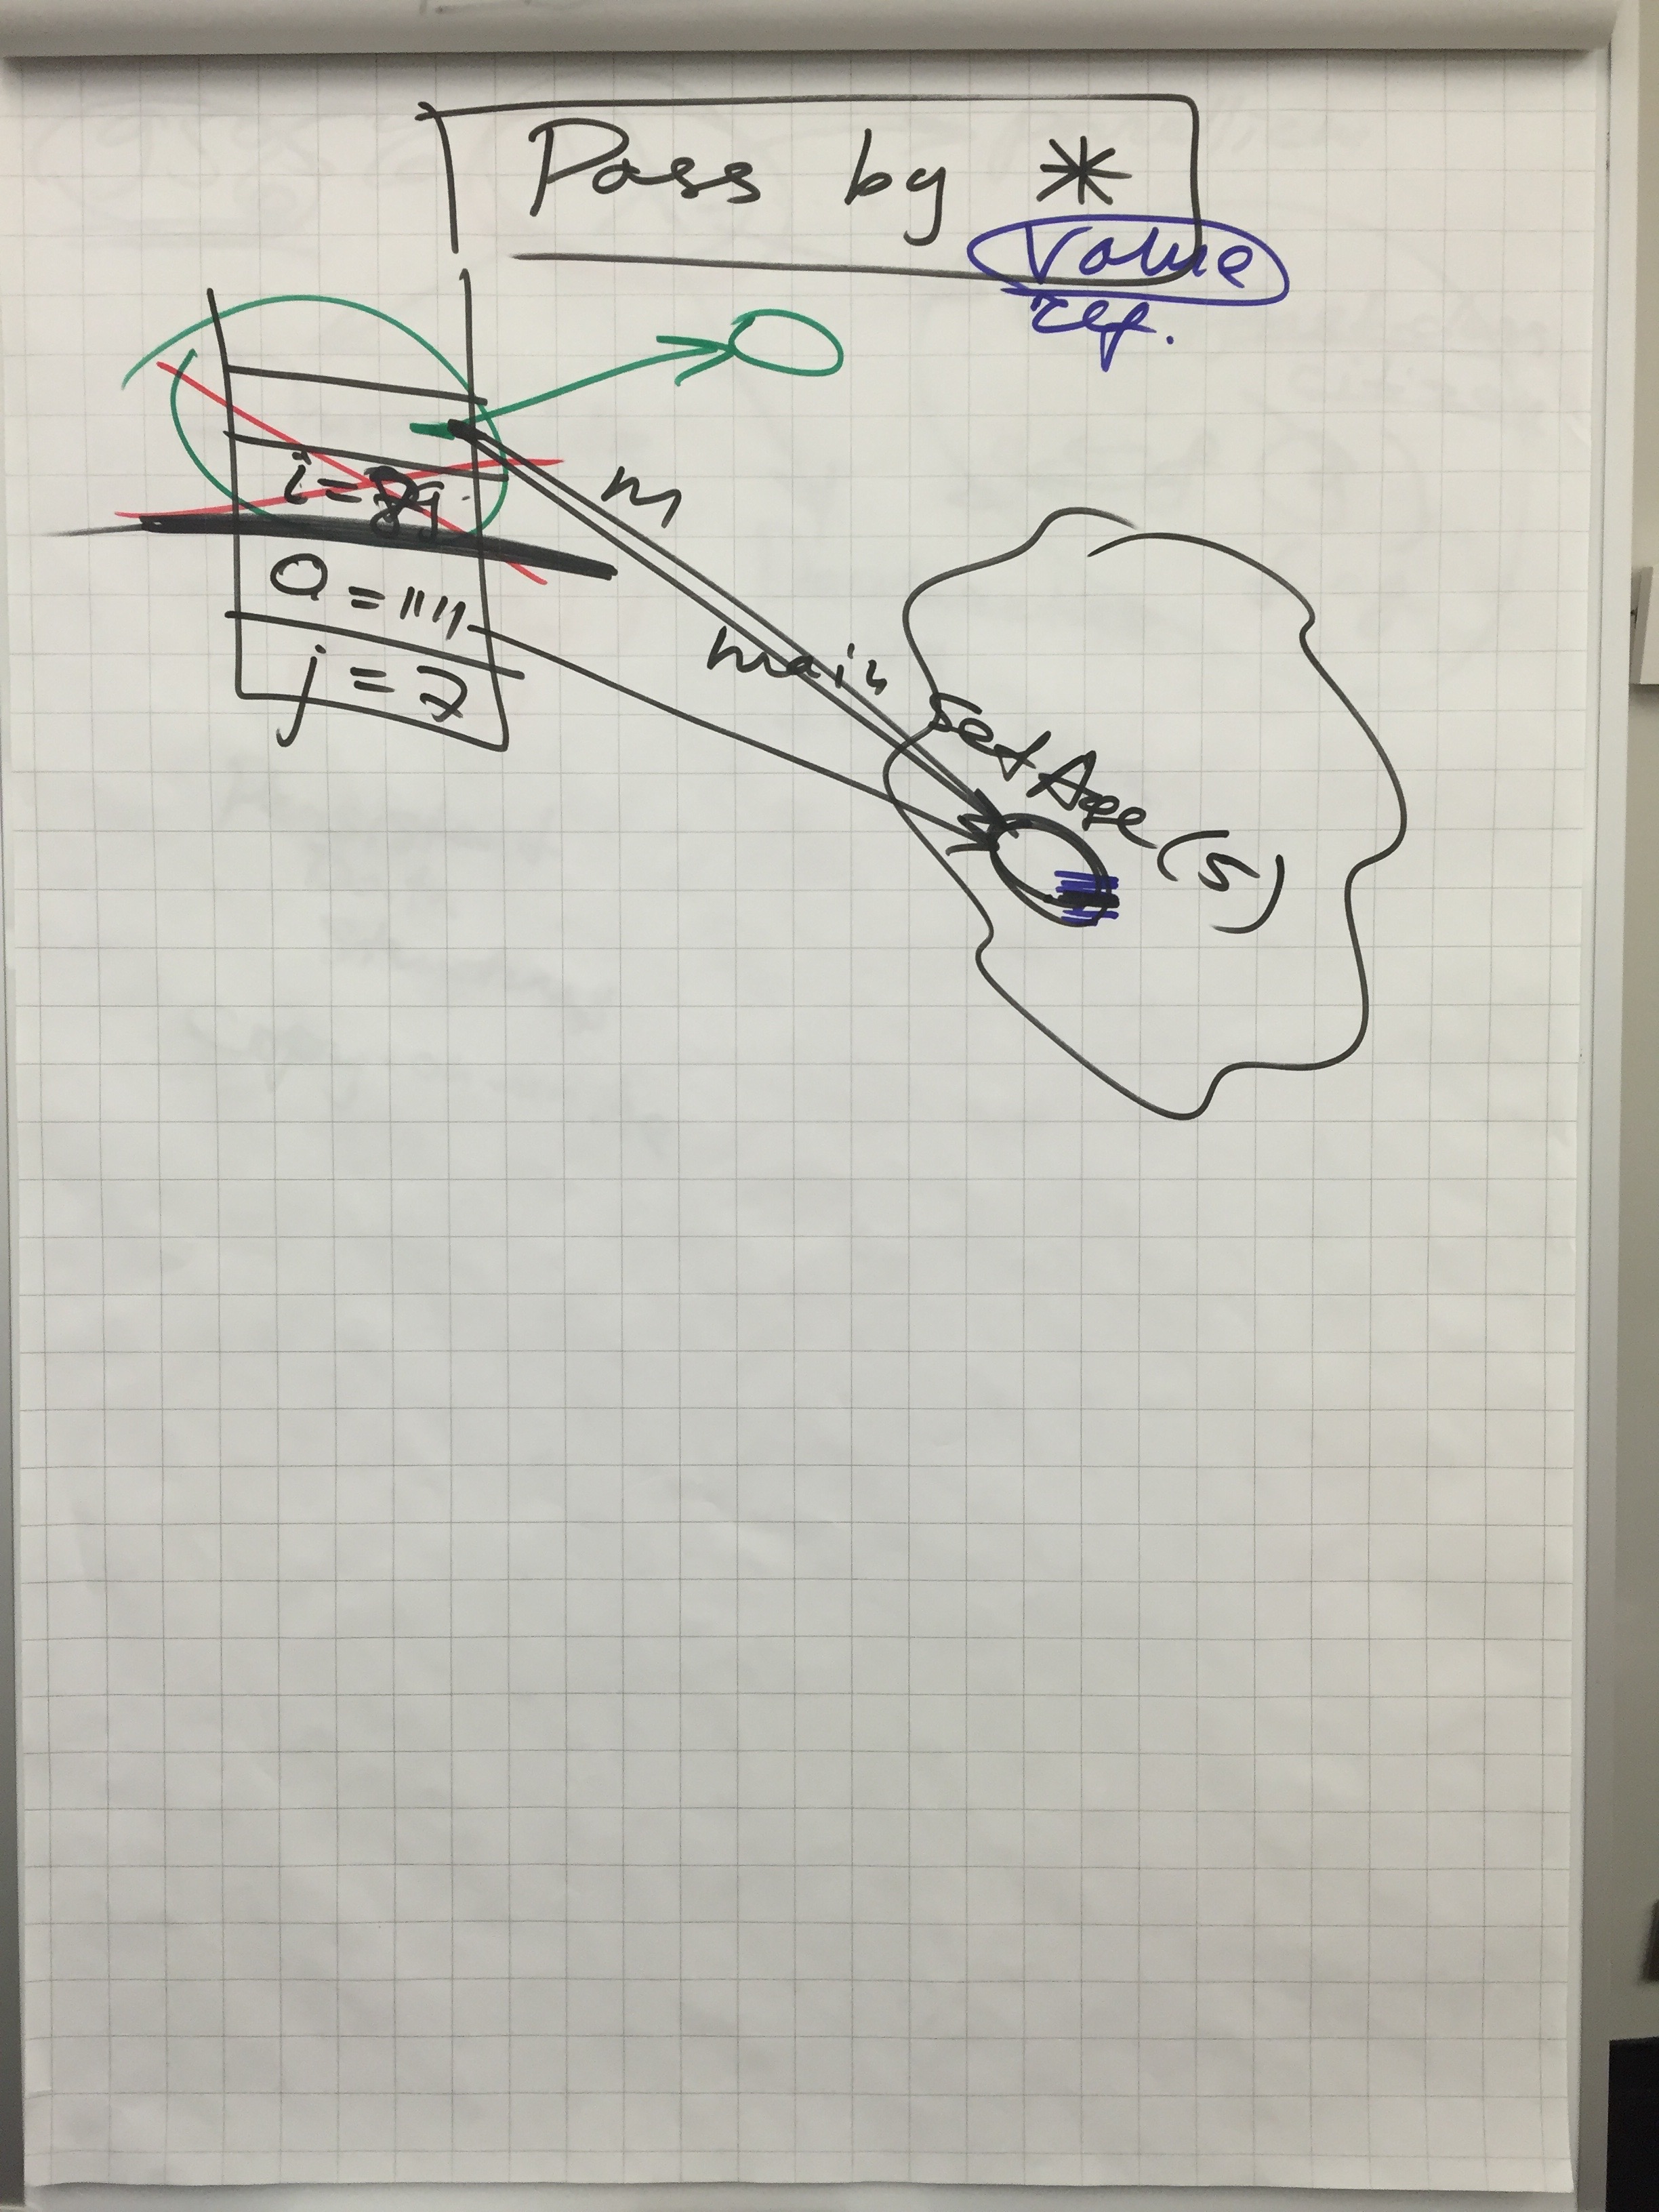 Pass by *
Value
Ref.
i = 8
o = 1111
j = 7
m
main
setAge(s)